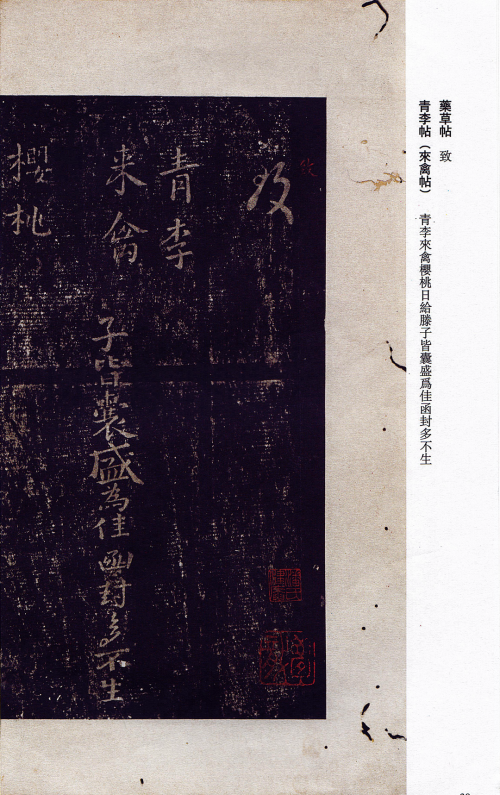 藥草帖　致
青李帖（來禽帖）　青李來禽櫻桃日給滕子皆囊盛爲佳函封多不生
致
青李
来禽
子皆囊盛為佳函封多不生
櫻桃